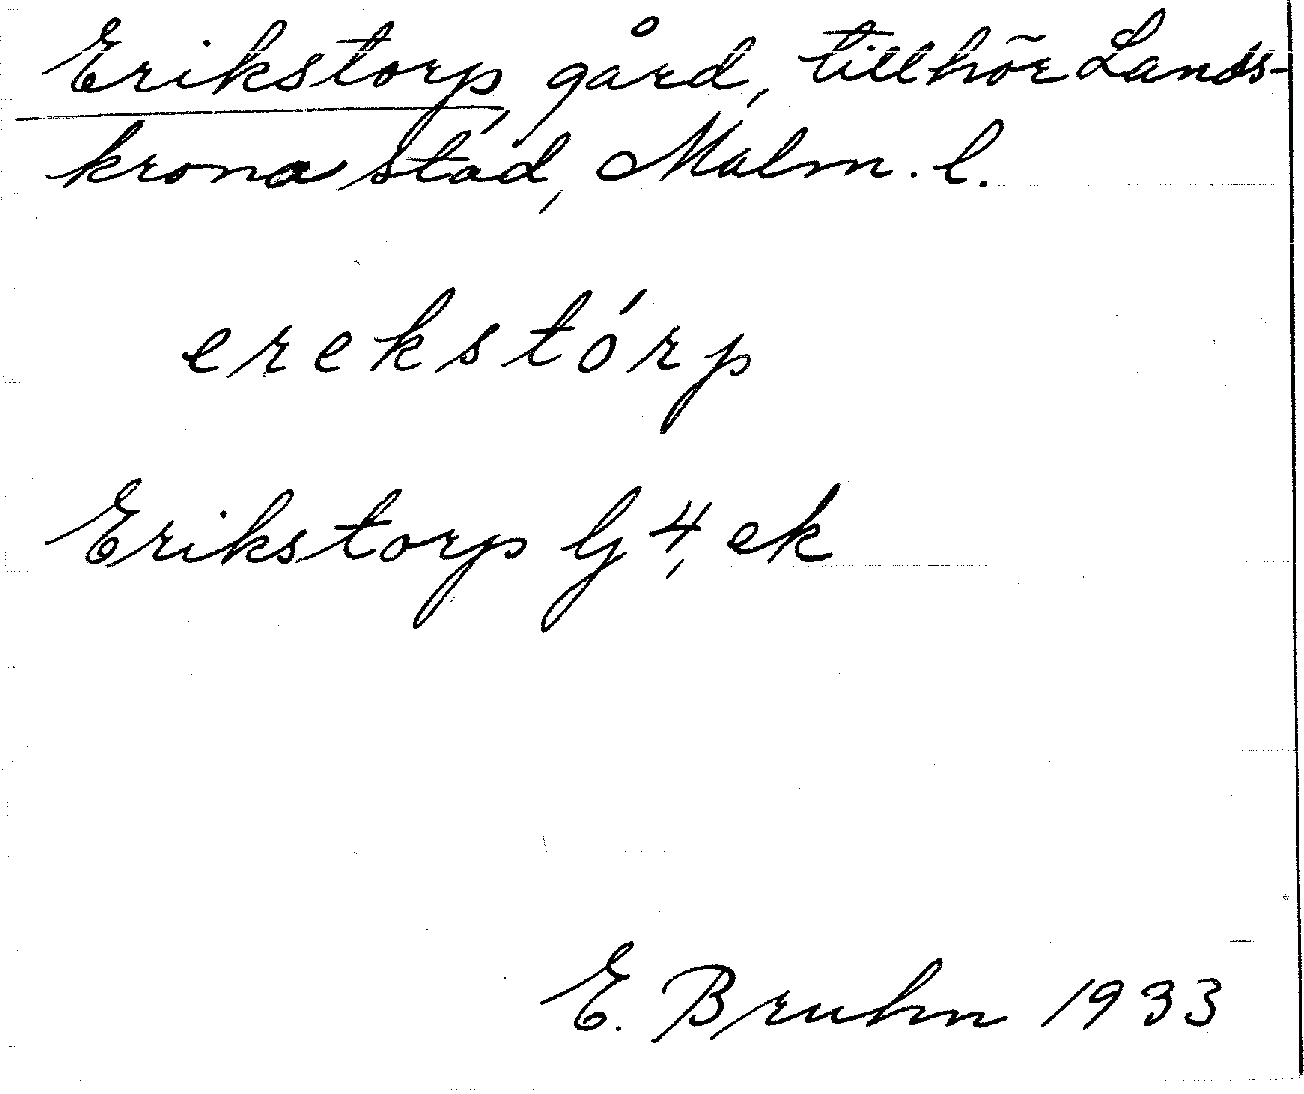 Erikstorp gård, tillhör Lands-
krona stad, Malm. l.
erekstórp
Erikstorp G 4, ek
E. Bruhn 1933